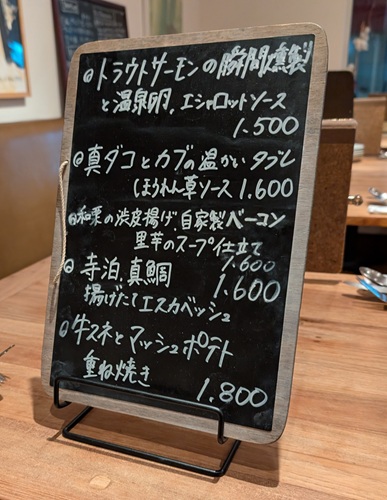 ◎トラウトサーモンの瞬間燻製
と温泉卵、エシャロットソース
1.500
◎真ダコとカブの温かいタブレ
ほうれん草ソース 1.600
◎和栗の渋皮揚げ、自家製ベーコン
里芋のスープ仕立て
1.600
◎寺泊、真鯛 1.600
揚げたてエスカベッシュ
◎牛スネとマッシュポテト
重ね焼き 1.800